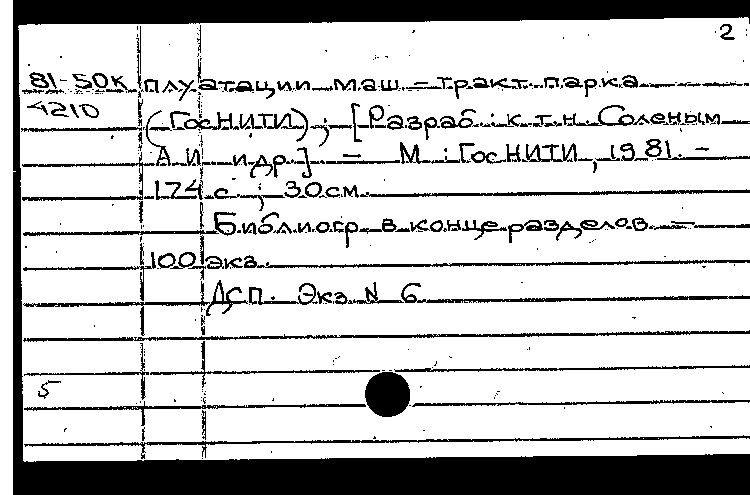 2
81-50к плуатации маш.-тракт. парка
4210 (ГосНИТИ) ; [Разраб.: к.т.н. Соленым
А.И. и др.] - М : ГосНИТИ, 1981. -
174 с. ; 30см.
Библиогр. в конце разделов -
100 экз.
ДСП. Экз N 6
5